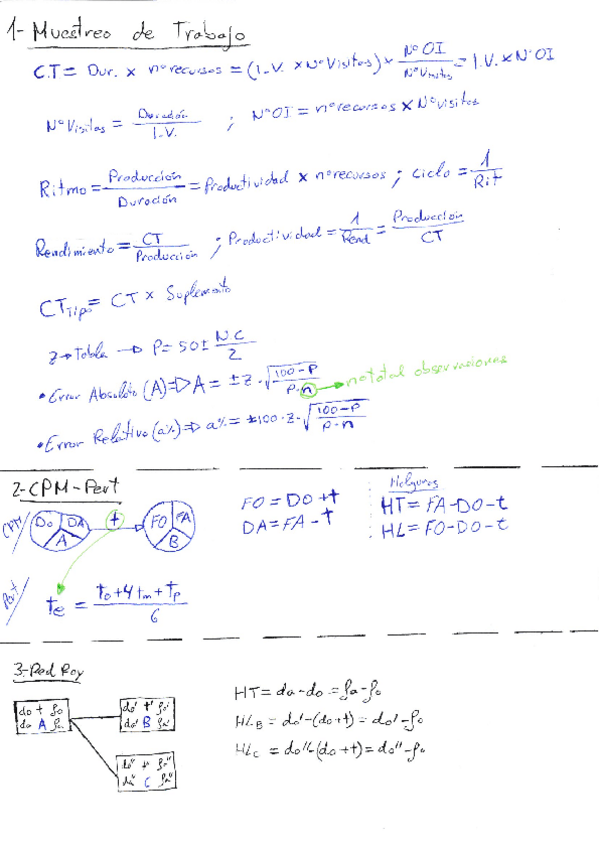 1- Muestreo de Trabajo
C.T = Dur. x nº recursos = (I-V. x Nº Visitas) x Nº OI / Nº Visitas = I.V. x Nº OI
Nº Visitas = Duración / I-V. ; Nº OI = nº recursos x Nº visitas
Ritmo = Producción / Duración = Productividad x nº recursos ; Ciclo = 1 / Rit
Rendimiento = CT / Producción ; Productividad = 1 / Rend = Producción / CT
CT Tipo = CT x Suplemento
z → Tabla → P = 50 ± N.C / 2
• Error Absoluto (A) => A = ± z · √(100-P / P·n) → nº total observaciones
• Error Relativo (a%) => a% = ±100·z·√(100-P / P·n)
2-CPM-Pert
CPM/ Do DA A t FO FA B
FO = DO + t
DA = FA - t
Holguras
HT = FA-DO-t
HL = FO-DO-t
Pert/ te = to + 4tm + tp / 6
3-Red Roy
do t fo
da A fa
do' t' fo'
da' B fa'
do'' t'' fo''
da'' C fa''
HT = da - do = fa - fo
HLB = do' - (do+t) = do' - fo
HLC = do'' - (do+t) = do'' - fo